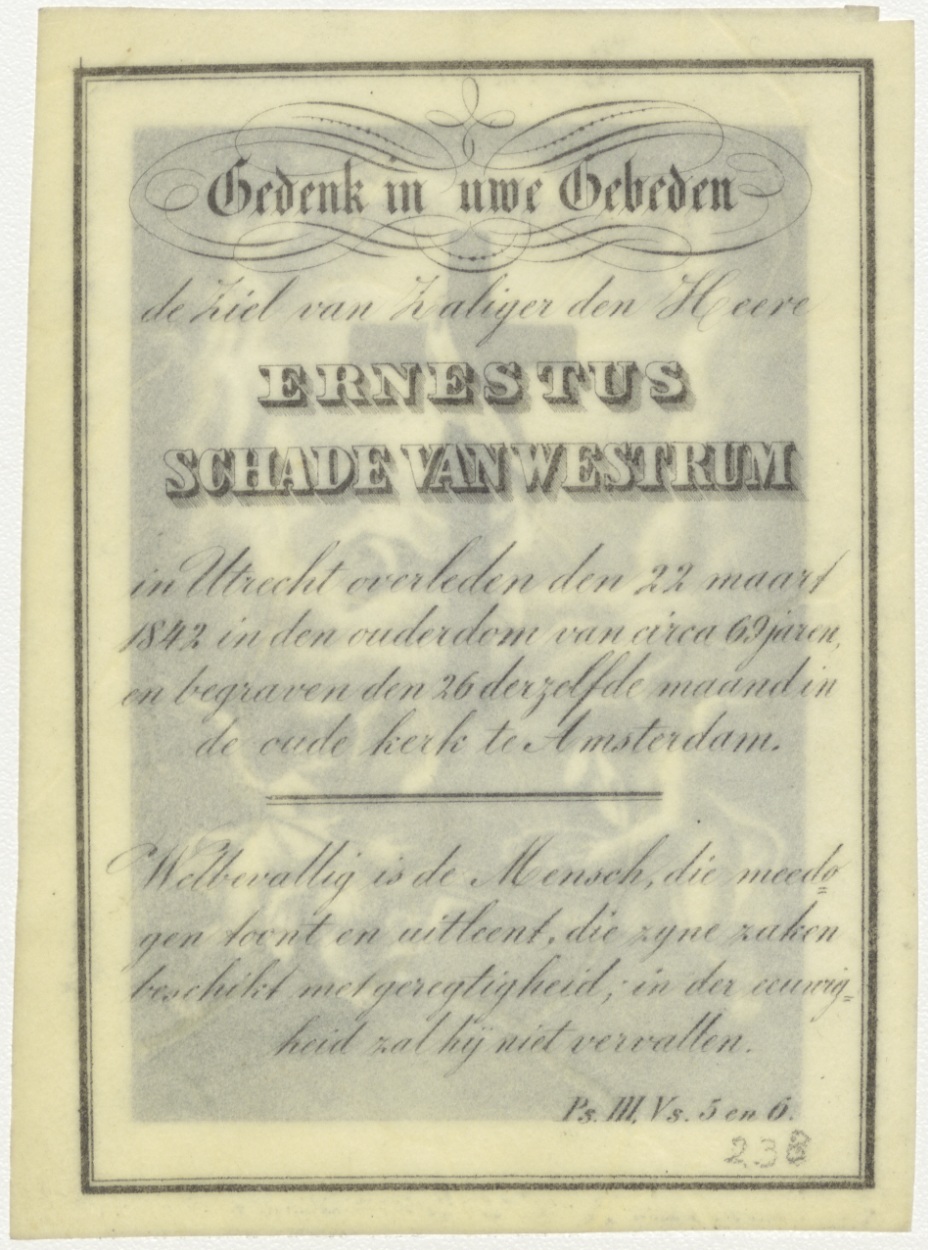 Gedenk in uwe Gebeden
de Ziel van Zaliger den Heere
ERNESTUS
SCHADE VAN WESTRUM
in Utrecht overleden den 22 maart
1842 in den ouderdom van circa 69 jaren,
en begraven den 26 derzelfde maand in
de oude kerk te Amsterdam.
Welbevallig is de Mensch, die meedo=
gen toont en uitleent, die zyne zaken
beschikt met geregtigheid; in der eeuwig=
heid zal hij niet vervallen.
Ps. III, Vs. 5 en 6.
238